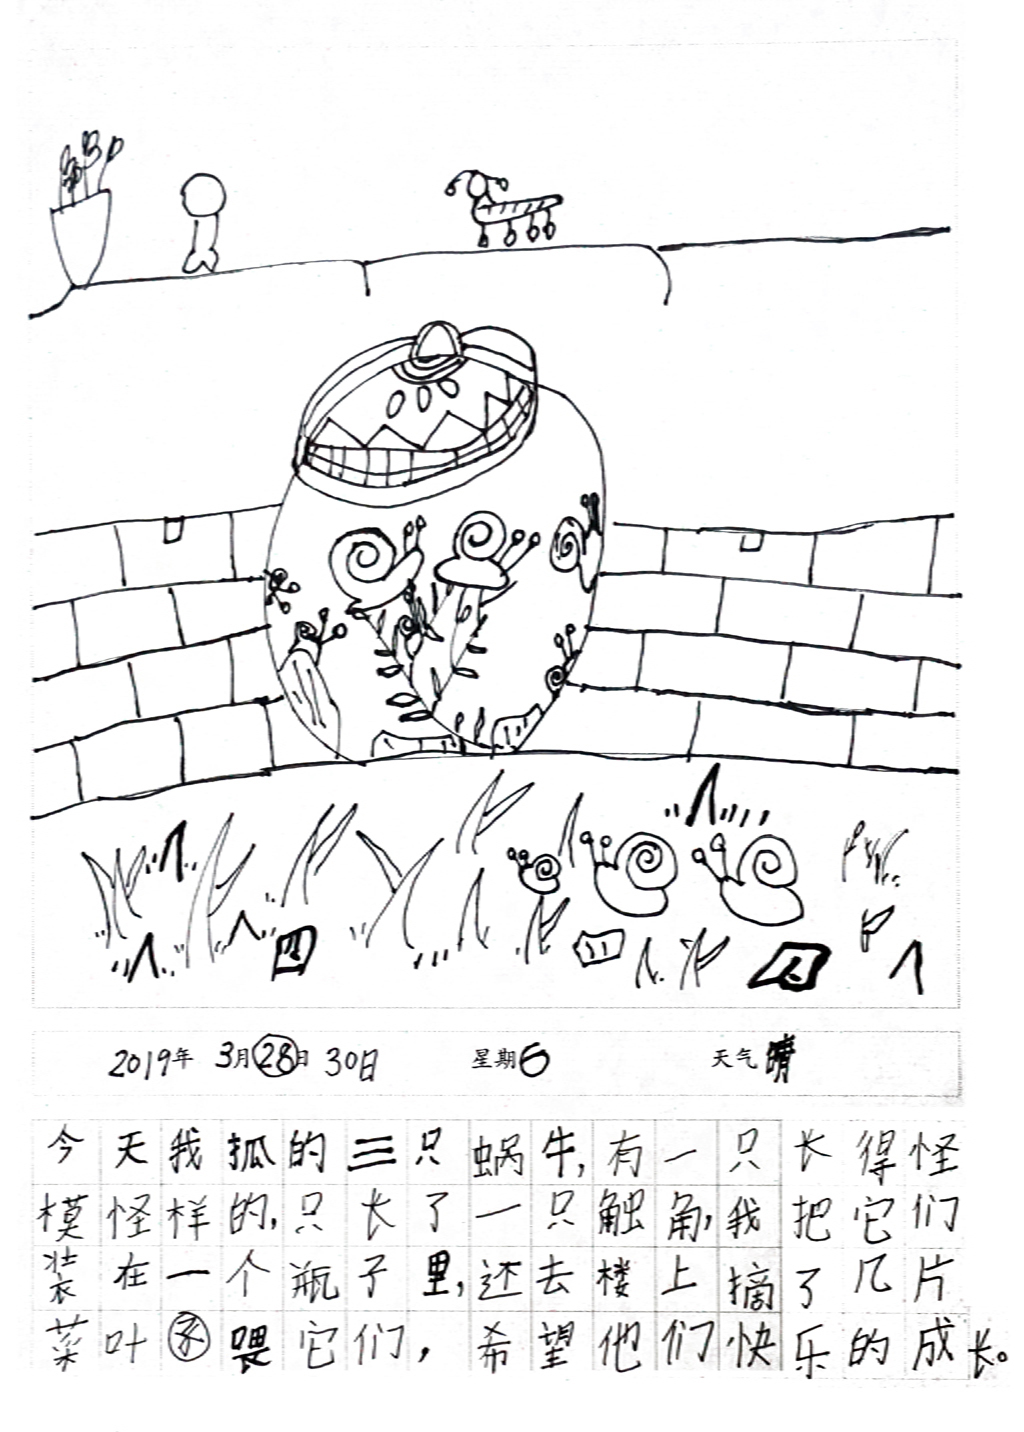 2019年 3月28日 30日 星期6 天气晴
今天我孤的三只蜗牛,有一只长得怪
模怪样的,只长了一只触角,我把它们
装在一个瓶子里,还去楼上摘了几片
菜叶 喂它们,希望他们快乐的成长。